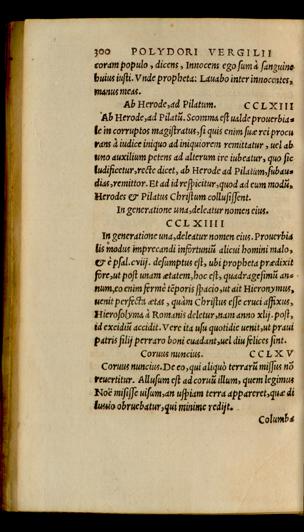 300 POLYDORI VERGILII
coram populo, dicens, Innocens ego sum à sanguine
huius iusti. Vnde propheta: Lauabo inter innocentes,
manus meas.
Ab Herode, ad Pilatum. CCLXIII
Ab Herode, ad Pilatū. Scomma est ualde prouerbia-
le in corruptos magistratus, si quis enim suæ rei procu
rans à iudice iniquo ad iniquiorem remittatur, uel ab
uno auxilium petens ad alterum ire iubeatur, quo sic
ludificetur, recte dicet, ab Herode ad Pilatum, subau-
dias, remittor. Et ad id respicitur, quod ad eum modū,
Herodes & Pilatus Christum collusissent.
In generatione una, deleatur nomen eius.
CCLXIIII
In generatione una, deleatur nomen eius. Prouerbia
lis modus imprecandi infortuniū alicui homini malo,
& è psal. cviij. desumptus est, ubi propheta prædixit
fore, ut post unam ætatem, hoc est, quadragesimū an-
num, eo enim fermè tēporis spacio, ut ait Hieronymus,
uenit perfecta ætas, quàm Christus esse cruci affixus,
Hierosolyma à Romanis deletur, nam anno xlij. post,
id excidiū accidit. Vere ita usu quotidie uenit, ut praui
patris filij perraro boni euadant, uel diu felices sint.
Coruus nuncius. CCLXV
Coruus nuncius. De eo, qui aliquò terrarū missus nō
reuertitur. Allusum est ad coruū illum, quem legimus
Noë misisse uisum, an uspiam terra appareret, quæ di
luuio obruebatur, qui minime redijt.
Columba